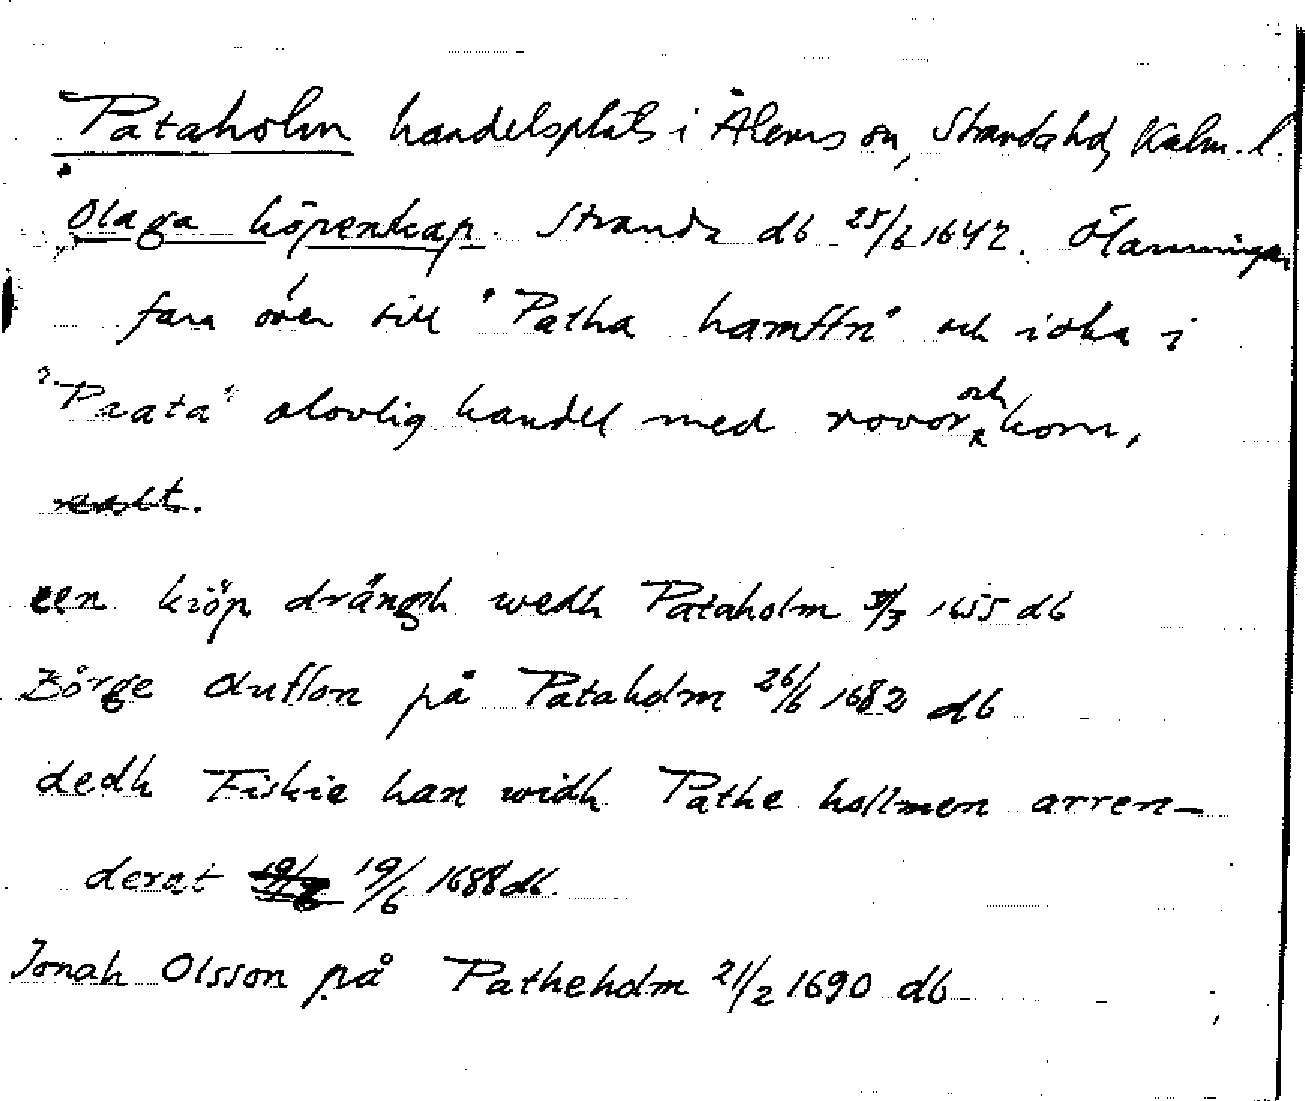 Pataholm handelsplats i Ålems sn, Stranda hd, Kalm. l.
Olaga köpenskap. Stranda db 25/6 1642. Ölänningar
fara över till "Patha hamffn" och idka i
"Paata" olovlig handel med rovor och korn,
een kiöp drängh wedh Pataholm 1655 db
Börge Oluffson på Pataholm 26/6 1682 db
dedh Fiskie han widh Pathe hollmen arren-
derat 19/6 1688 db.
Jonah Olsson på Patheholm 21/2 1690 db